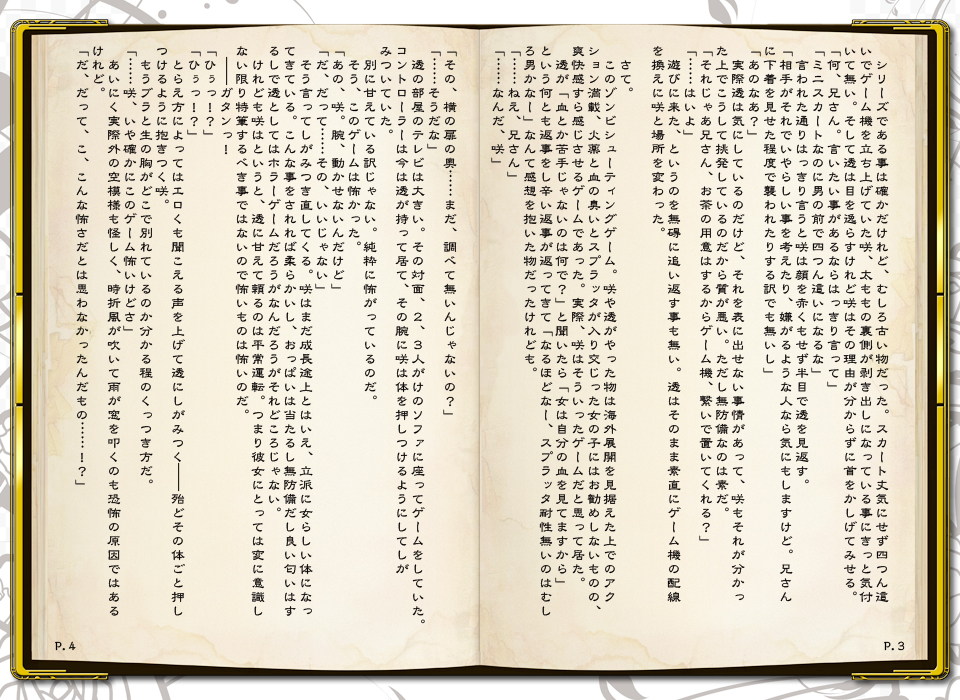 シリーズである事は確かだけれど、むしろ古い物だった。スカート丈気にせず四つん這
いでゲーム機を立ち上げていた咲、太ももの裏側が剥き出しになっている事にきっと気付
いて無い。そして透は目を逸らすけれど咲はその理由が分からずに首をかしげてみせる。
「何、兄さん。言いたい事があるならはっきり言って」
「ミニスカートなのに男の前で四つん這いになるな」
言われた通りはっきり言うと咲は顔を赤くもせず半目で透を見返す。
「相手がそれでいやらしい事を考えたり、嫌がるような人なら気にもしますけど。兄さん
に下着を見せた程度で襲われたりする訳でも無いし」
「あのなあ？」
実際透は気にしているのだけど、それを表に出せない事情があって、咲もそれが分かっ
た上でこうして挑発しているのだから質が悪い。ただし無防備なのは素だ。
「それじゃあ兄さん、お茶の用意はするからゲーム機、繋いで置いてくれる？」
「……はいよ」
遊びに来た、というのを無碍に追い返す事も無い。透はそのまま素直にゲーム機の配線
を換えに咲と場所を変わった。
さて。
このゾンビシューティングゲーム。咲や透がやった物は海外展開を見据えた上でのアク
ション満載、火薬と血の臭いとスプラッタが入り交じった女の子にはお勧めしないものの、
爽快感すら感じさせるゲームであった。実際、咲はそういったゲームだと思って居て、
透が「血とか苦手じゃないのは何で？」と聞いたら「女は自分の血を見てますから」
という何とも返事をし辛い返事が返ってきて「なるほどなー、スプラッタ耐性無いのはむし
ろ男かなー」なんて感想を抱いた物だったけれども。
「……ねえ、兄さん」
「……なんだ、咲」
「その、横の扉の奥……まだ、調べて無いんじゃないの？」
「……そうだな」
透の部屋のテレビは大きい。その対面、２、３人がけのソファに座ってゲームをしていた。
コントローラーは今は透が持って居て、その腕に咲は体を押しつけるようにしてしが
みついた。
別に甘えている訳じゃない。純粋に怖がっているのだ。
そう、このゲームは怖かった。
「あの、咲。腕、動かせないんだけど」
「だ、だって……その、いいじゃない」
そう言ってしがみつき直してくる。咲はまだ成長途上とはいえ、立派に女らしい体になっ
てきている。こんな事をされれば柔らかいし、おっぱいは当たるし無防備だし良い匂いはす
るしで透としてはホラーゲームだろうがなんだろうがそれどころじゃない。
けれども咲はというと、透に甘えて頼るのは平常運転。つまり彼女にとっては変に意識し
ない限り特筆するべき事ではないので怖いものは怖いのだ。
――ガタンっ！
「ひぅっ！？」
「ひぅっ！？」
とらえ方によってはエロくも聞こえる声を上げて透にしがみつく――殆どその体ごと押し
つけるように抱きつく咲。
もうブラと生の胸がどこで別れているのか分かる程のくっつき方だ。
「……咲、いや確かにこのゲーム怖いけどさ」
あいにく実際外の空模様も怪しく、時折風が吹いて雨が窓を叩くのも恐怖の原因ではある
けれど。
「だ、だって、こ、こんな怖さだとは思わなかったんだもの……！？」
P.4
P.3